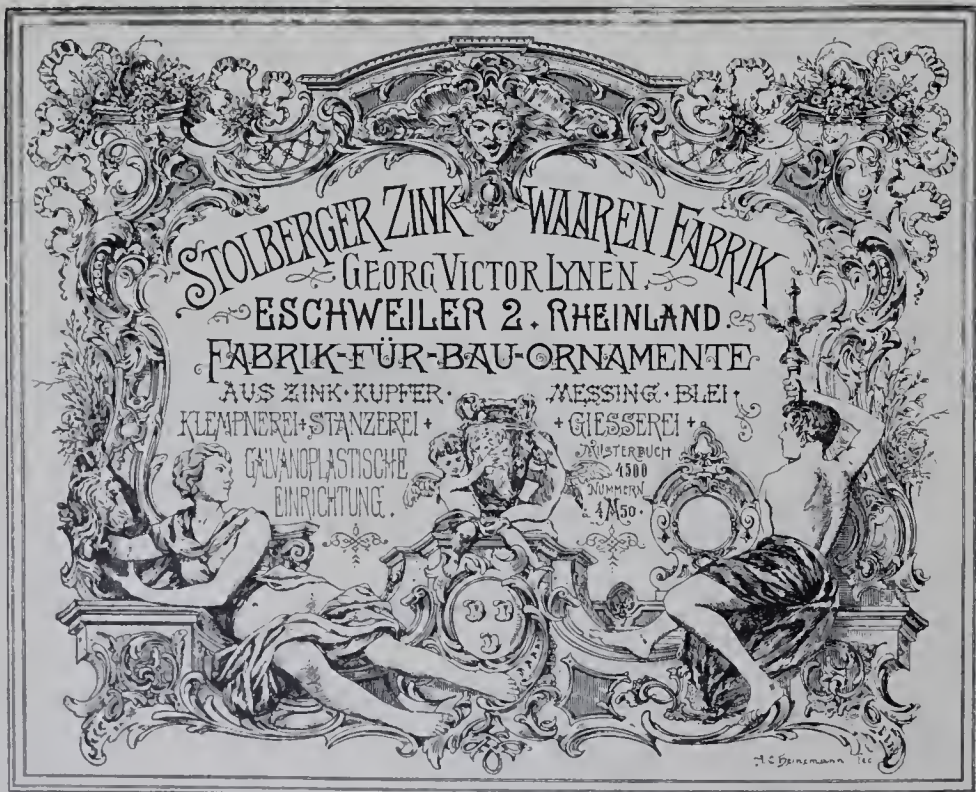 STOLBERGER ZINK WAAREN FABRIK
GEORG VICTOR LYNEN
ESCHWEILER 2. RHEINLAND.
FABRIK-FÜR-BAU-ORNAMENTE
AUS ZINK·KUPFER· MESSING·BLEI·
KLEMPNEREI+STANZEREI+ +GIESSEREI+
GALVANOPLASTISCHE
EINRICHTUNG.
MUSTERBUCH
4500
NUMMERN
à 4M50.
Heinemann